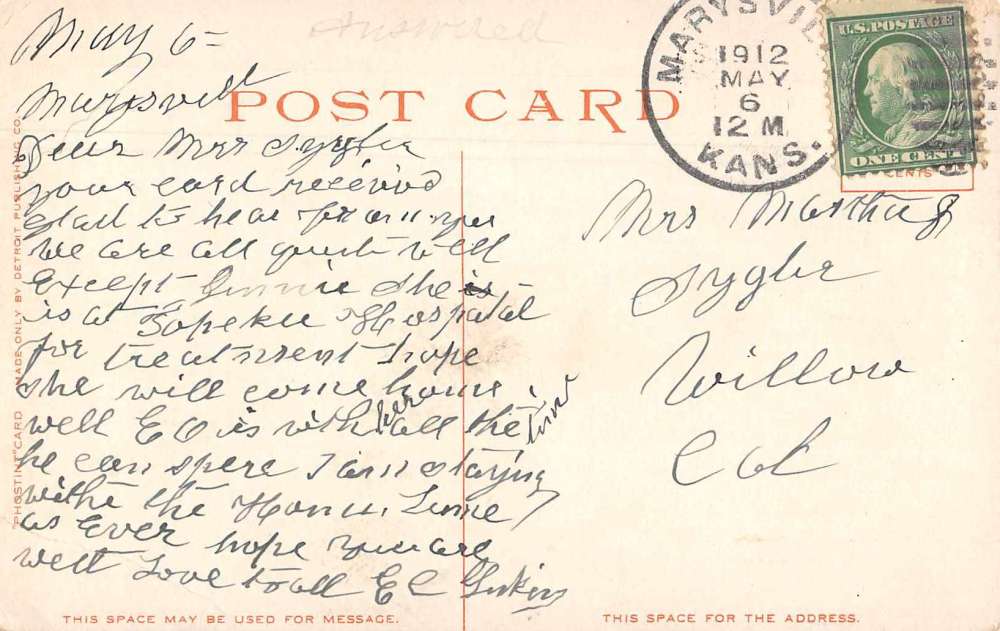 Answered
May 6 =
Marysvill
POST CARD
MARYSVIL
1912
MAY
6
12 M
KANS.
U.S. POSTAGE
ONE CENT
CENTS
Dear Mrs Sygbe
your card received
Glad to hear from you
we are all quite well
Except Ginnie She is
is at Topeka Hospital
for treatment I hope
she will come home
well E O is with her all the time
he can spare I am staying
withe the Home. Same
as Ever hope you are
well Love to all E C
Mrs Martha
Sygbe
Willow
Cal
"PHOSTINT" CARD MADE ONLY BY DETROIT PUBLISHING CO.
THIS SPACE MAY BE USED FOR MESSAGE.
THIS SPACE FOR THE ADDRESS.